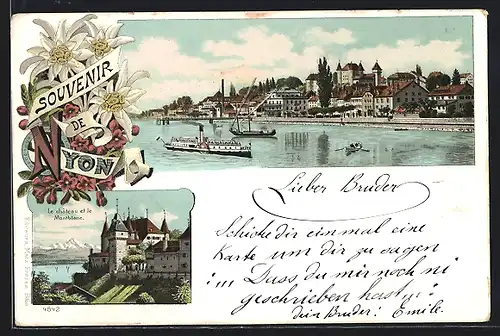 SOUVENIR
DE
NYON
Le château et le
Montblanc.
4842
Lieber Bruder
Schicke dir einmal eine
Karte um dir zu sagen
"Dass du mir noch ni
geschrieben hast"
dein Bruder: Emile.